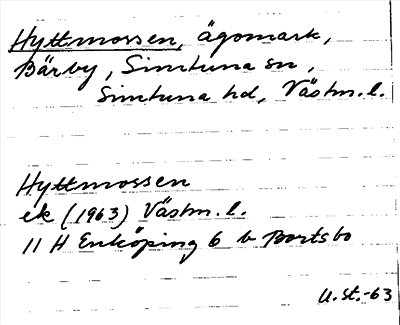 Hyttmossen, ägomark,
Bärby, Simtuna sn,
Simtuna hd, Västm. l.
Hyttmossen
ek (1963) Västm. l.
11 H Enköping 6 b Bortsbo
U.St.-63